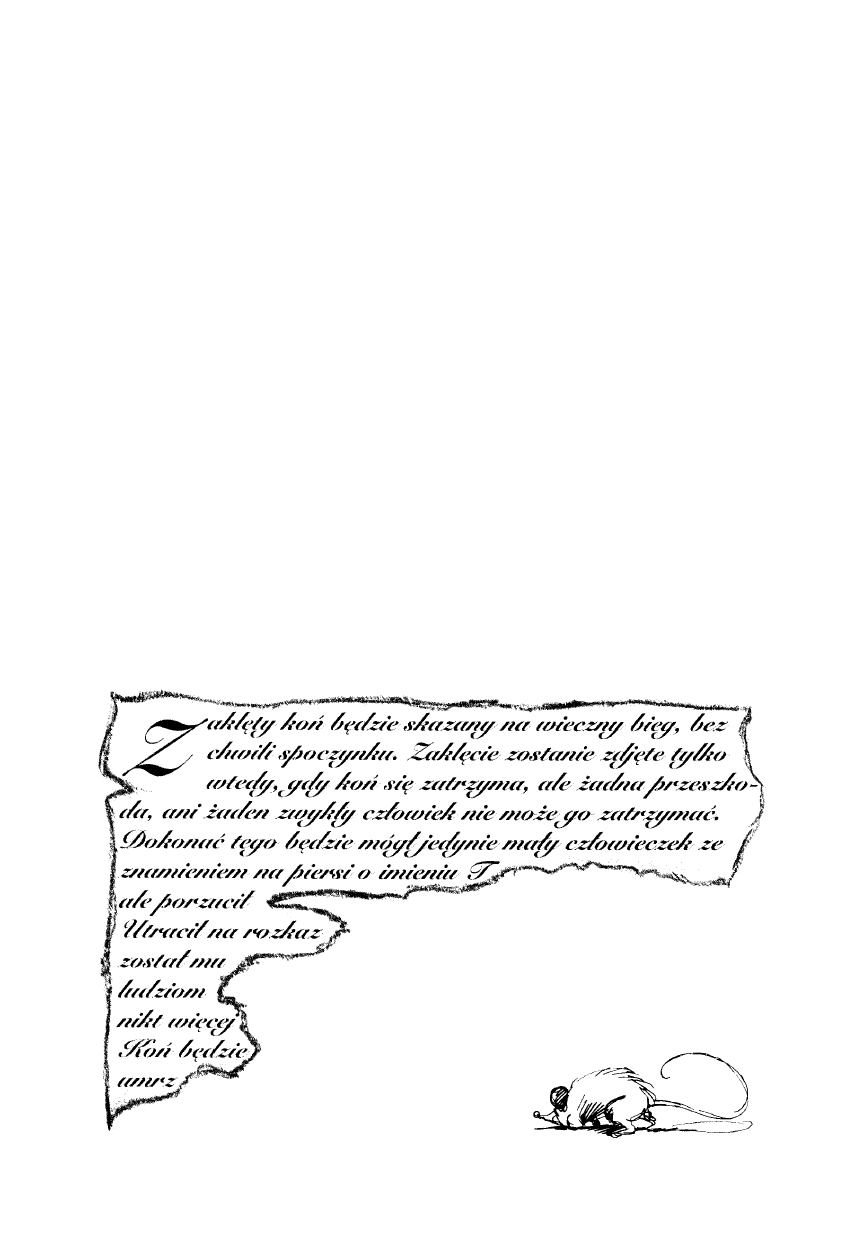 Zaklęty koń będzie skazany na wieczny bieg, bez
chwili spoczynku. Zaklęcie zostanie zdjęte tylko
wtedy, gdy koń się zatrzyma, ale żadna przeszko-
da, ani żaden zwykły człowiek nie może go zatrzymać.
Dokonać tego będzie mógł jedynie mały człowieczek ze
znamieniem na piersi o imieniu T
ale porzucił
Utracił na rozkaz
został mu
ludziom
nikt więcej
Koń będzie
umrz